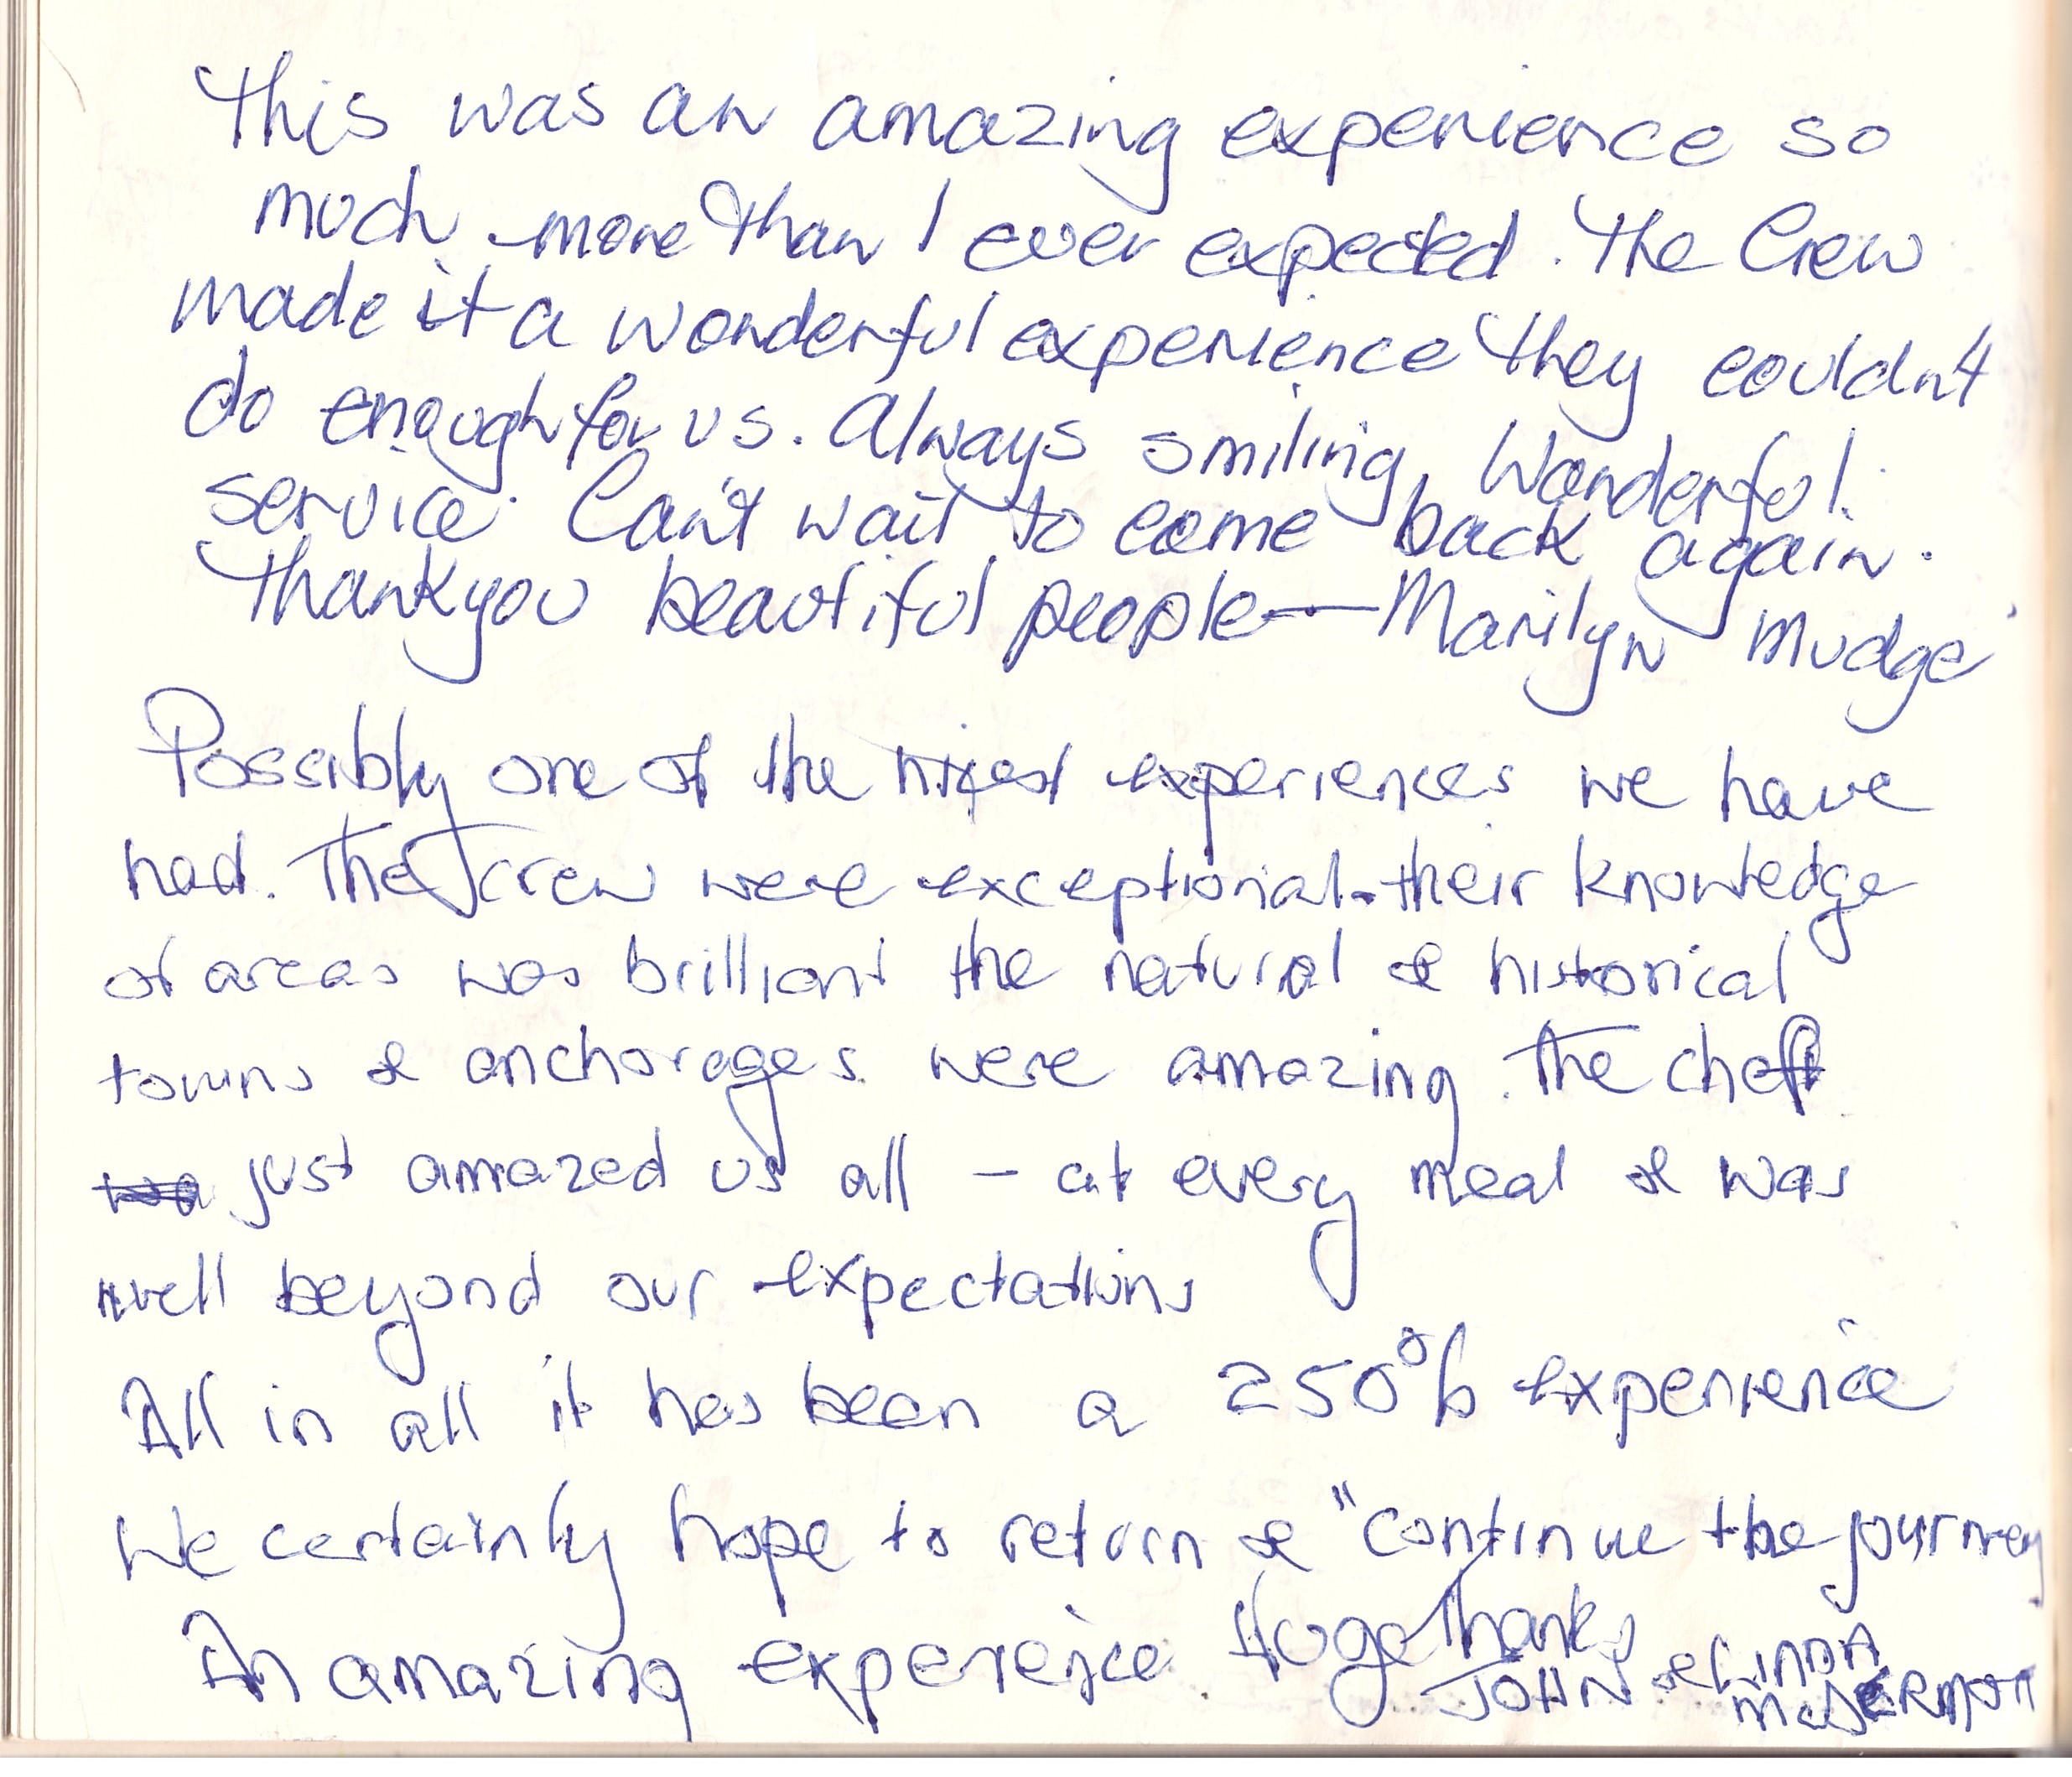 This was an amazing experience so
much more than I ever expected. The Crew
made it a wonderful experience they couldn't
do enough for us. Always smiling, Wonderful
service. Can't wait to come back again.
Thankyou beautiful people — Marilyn Mudge
Possibly one of the nicest experiences we have
had. The crew were exceptional - their knowledge
of areas was brilliant the natural & historical
towns & anchorages were amazing. The chef
just amazed us all - at every meal & was
well beyond our expectations
All in all it has been a 250% experience
We certainly hope to return & "continue the journey
An amazing experience. Huge Thanks
JOHN & LINDA
McDERMOTT